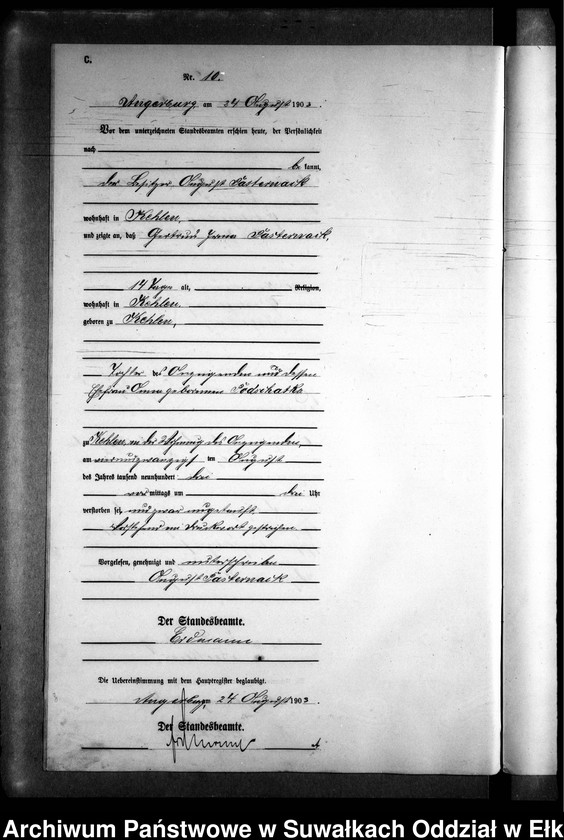 C.
Nr. 10.
Angerburg am 24 August 1903.
Vor dem unterzeichneten Standesbeamten erschien heute, der Persönlichkeit
nach
bekannt,
der Besitzer August Pasternack
wohnhaft in Kehlen,
und zeigte an, daß Gertrud Pasternack,
14 Tage alt, Religion,
wohnhaft in Kehlen
geboren zu Kehlen,
Tochter des Anzeigenden und dessen
Ehefrau Anna geborenen
zu Kehlen, in der Wohnung des Anzeigenden,
am vierundzwanzigsten August
des Jahres tausend neunhundert drei
vormittags um drei Uhr
verstorben sei, und zwar ungetauft.
Vorstehend ein Druckwort gestrichen.
Vorgelesen, genehmigt und unterschrieben
August Pasternack
Der Standesbeamte.
Erdmann
Die Uebereinstimmung mit dem Hauptregister beglaubigt.
Angerburg, 24 August 1903
Der Standesbeamte.
Erdmann
Archiwum Państwowe w Suwałkach Oddział w Ełk